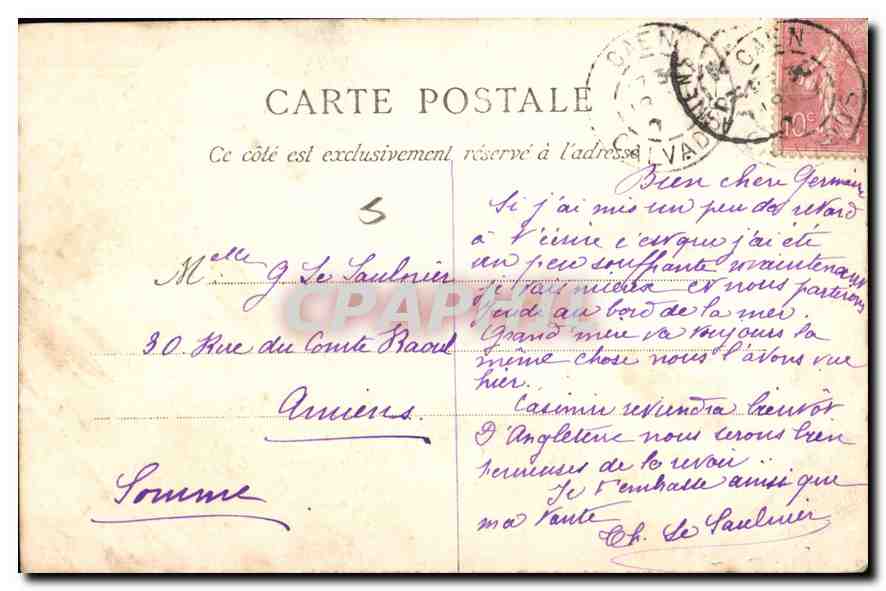 CARTE POSTALE
Ce côté est exclusivement réservé à l'adresse
CAEN
CALVADOS
AMIENS
CAEN
CALVADOS
10c
5
CPAPHIL
Melle G Le Saulnier
30 Rue du Comte Raoul
Amiens.
Somme
Bien chere Germaine
Si j'ai mis un peu de retard
à t'écrire c'est que j'ai été
un peu souffrante maintenant
je vais mieux et nous partirons
Jeudi au bord de la mer.
Grand'mère va toujours la
même chose nous l'avons vue
hier.
Casimir reviendra bientôt
D'Angleterre nous serons bien
heureuses de le revoir..
Je t'embrasse ainsi que
ma tante
Th. Le Saulnier